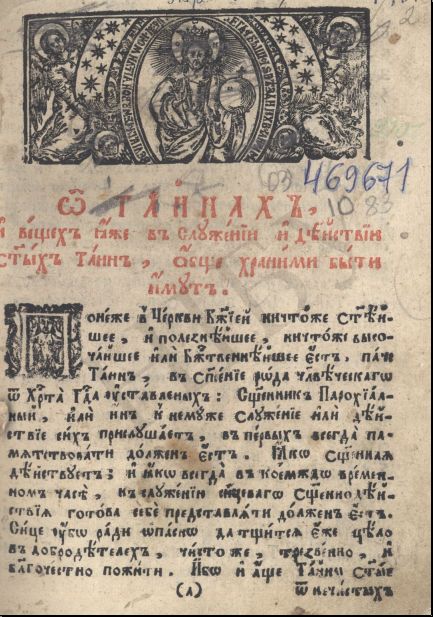 469671
1083
Ѿ ТА́ИНАХЪ,
И҆ ве́щехъ ꙗ҆̀же въ Слꙋже́нїи и҆ дѣ́йствїи
ст҃ы́хъ Та́инъ, Ѻ҆́бще храни́ми бы́ти
и҆́мꙋтъ.
Поне́же в̾ Це́ркви Бж҃їей ничто́же ст҃ѣ́й-
шее, и҆ поле́знѣйшее, ничто́же высо-
ча́йшее и҆лѝ Бж҃твеннѣ́йшее є҆́стъ, па́че
Та́инъ, въ сп҃се́нїе ро́да чл҃вѣ́ческагѡ
ѿ Хрⷭ҇та̀ Гдⷭ҇а ᲂу҆ста́вленыхъ: Сщ҃е́нникъ Парохїа́л-
ный, и҆лѝ и҆́нъ к̾ немꙋ́же слꙋже́нїе и҆лѝ дѣ́й-
ствїе си́хъ прислꙋша́етъ, въ пе́рвыхъ всегда̀ па-
мѧ́тствовати до́лженъ є҆́стъ. Ꙗ҆́кѡ сщ҃е́ннаѧ
дѣ́йствꙋетъ; и҆ ꙗ҆́кѡ всегда̀ въ ко́емждо вре́мен-
номъ часѣ̀, къ слꙋже́нїю си́цевагѡ сщ҃еннодѣ́й-
ствїѧ гото́ва себѐ представлѧ́ти до́лженъ є҆́стъ.
Си́це ᲂу҆́бѡ ра́ди ѡ҆па́снѡ да тщи́тсѧ є҆́же цѣ́лѡ
въ добродѣ́телехъ, чи́сто же, тре́звеннѡ, и҆
бл҃гоче́стно пожи́ти. И҆́бо и҆ а҆́ще Та́инъ ст҃ы́ѧ
(а)
ѿ нечи́стыхъ